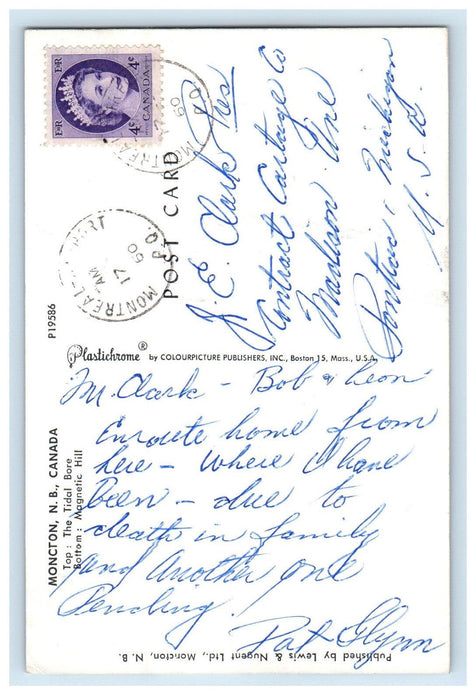 E II R
CANADA
4¢
4¢
E II R
MONTREAL P.Q.
60
MONTREAL AIRPORT
P.Q.
AM
17
60
POST CARD
J. E. Clark Pres
Contract Cartage Co
Madison Ave
Pontiac, Michigan
U. S. A.
P19586
Plastichrome® by COLOURPICTURE PUBLISHERS, INC., Boston 15, Mass., U.S.A.
MONCTON, N. B., CANADA
Top: The Tidal Bore
Bottom: Magnetic Hill
Mr. Clark - Bob & Leon
Enroute home from
here - where I have
been - due to
death in family
and another one
pending.
Pat Glynn
Published by Lewis & Nugent Ltd., Moncton, N. B.